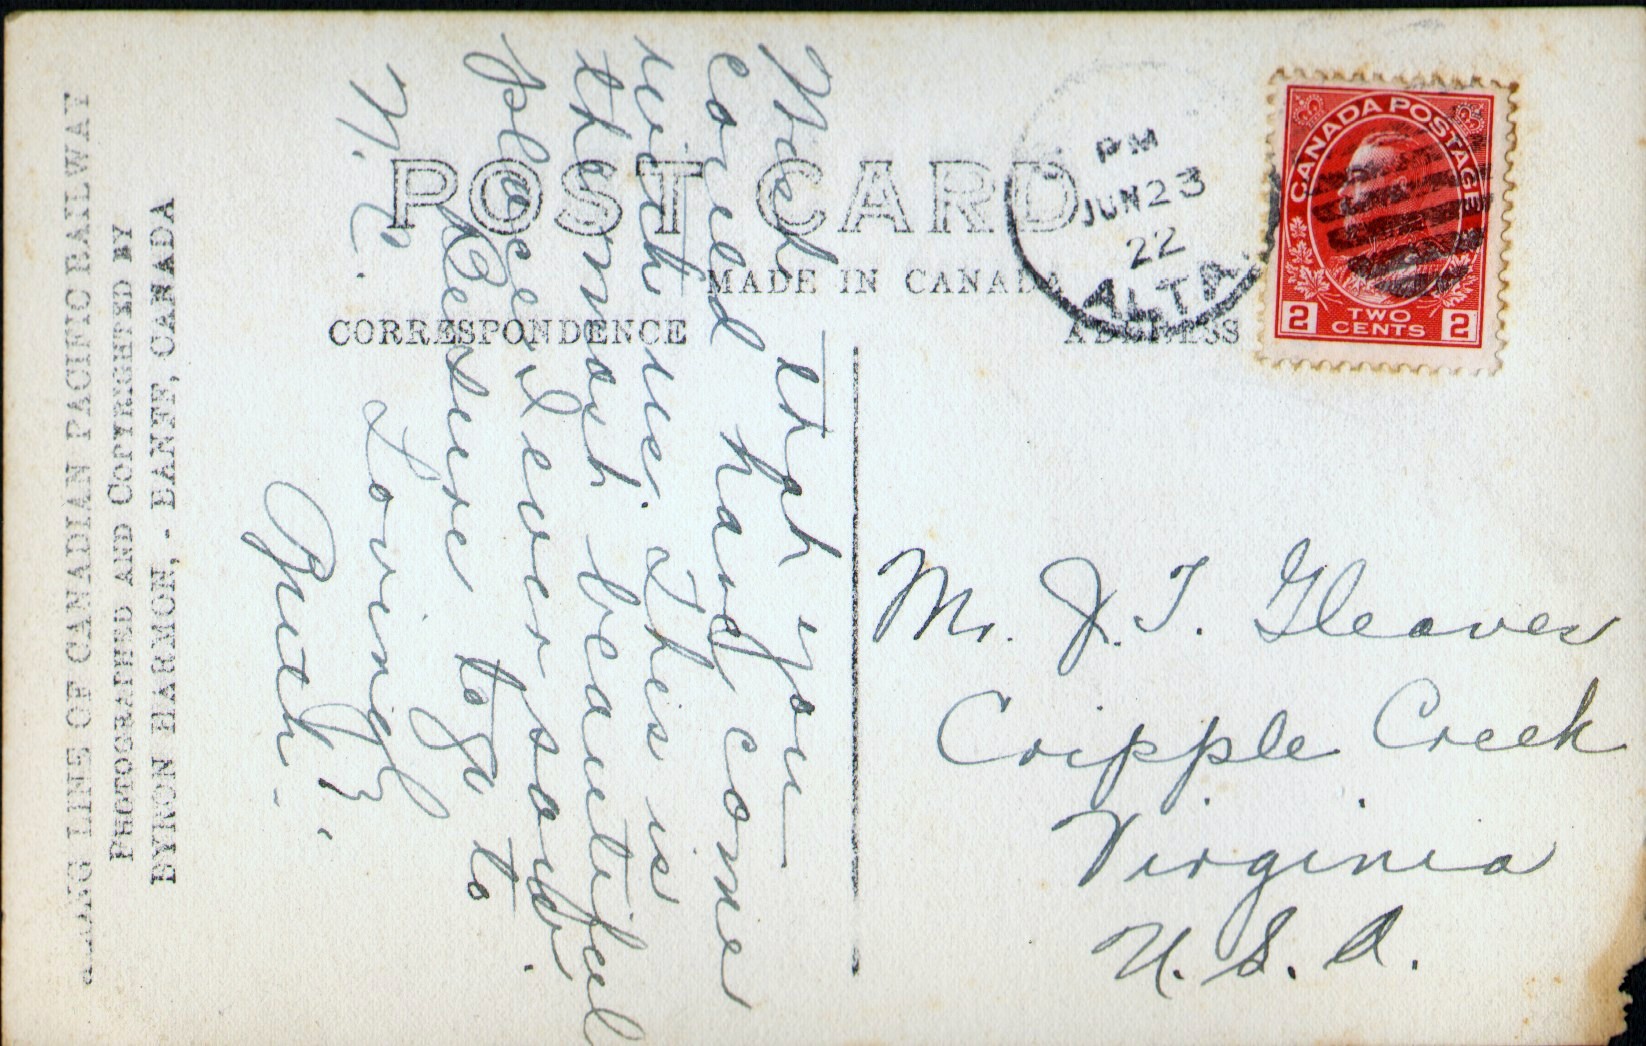 POST CARD
MADE IN CANADA
CORRESPONDENCE
ADDRESS
PM
JUN 23
22
ALTA.
CANADA POSTAGE
2 TWO CENTS 2
Wish that you
could have come
with us. This is
the most beautiful
place I ever saw.
Be sure to go to
N. C.
Loving
Ruth B.
Mr. J. T. Gleaves
Cripple Creek
Virginia
U. S. A.
ALONG LINE OF CANADIAN PACIFIC RAILWAY
PHOTOGRAPHED AND COPYRIGHTED BY
BYRON HARMON, - BANFF, CANADA